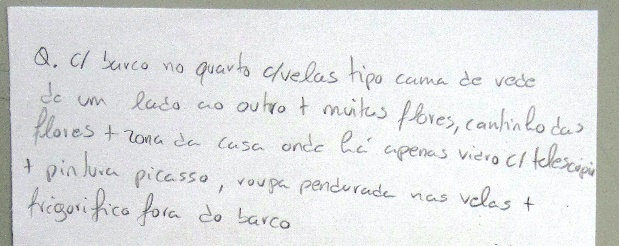 Q. c/ barco no quarto c/velas tipo cama de rede
de um lado ao outro + muitas flores, cantinho das
flores + zona da casa onde há apenas vidro c/ telescópio
+ pintura picasso, roupa pendurada nas velas +
frigorifico fora do barco